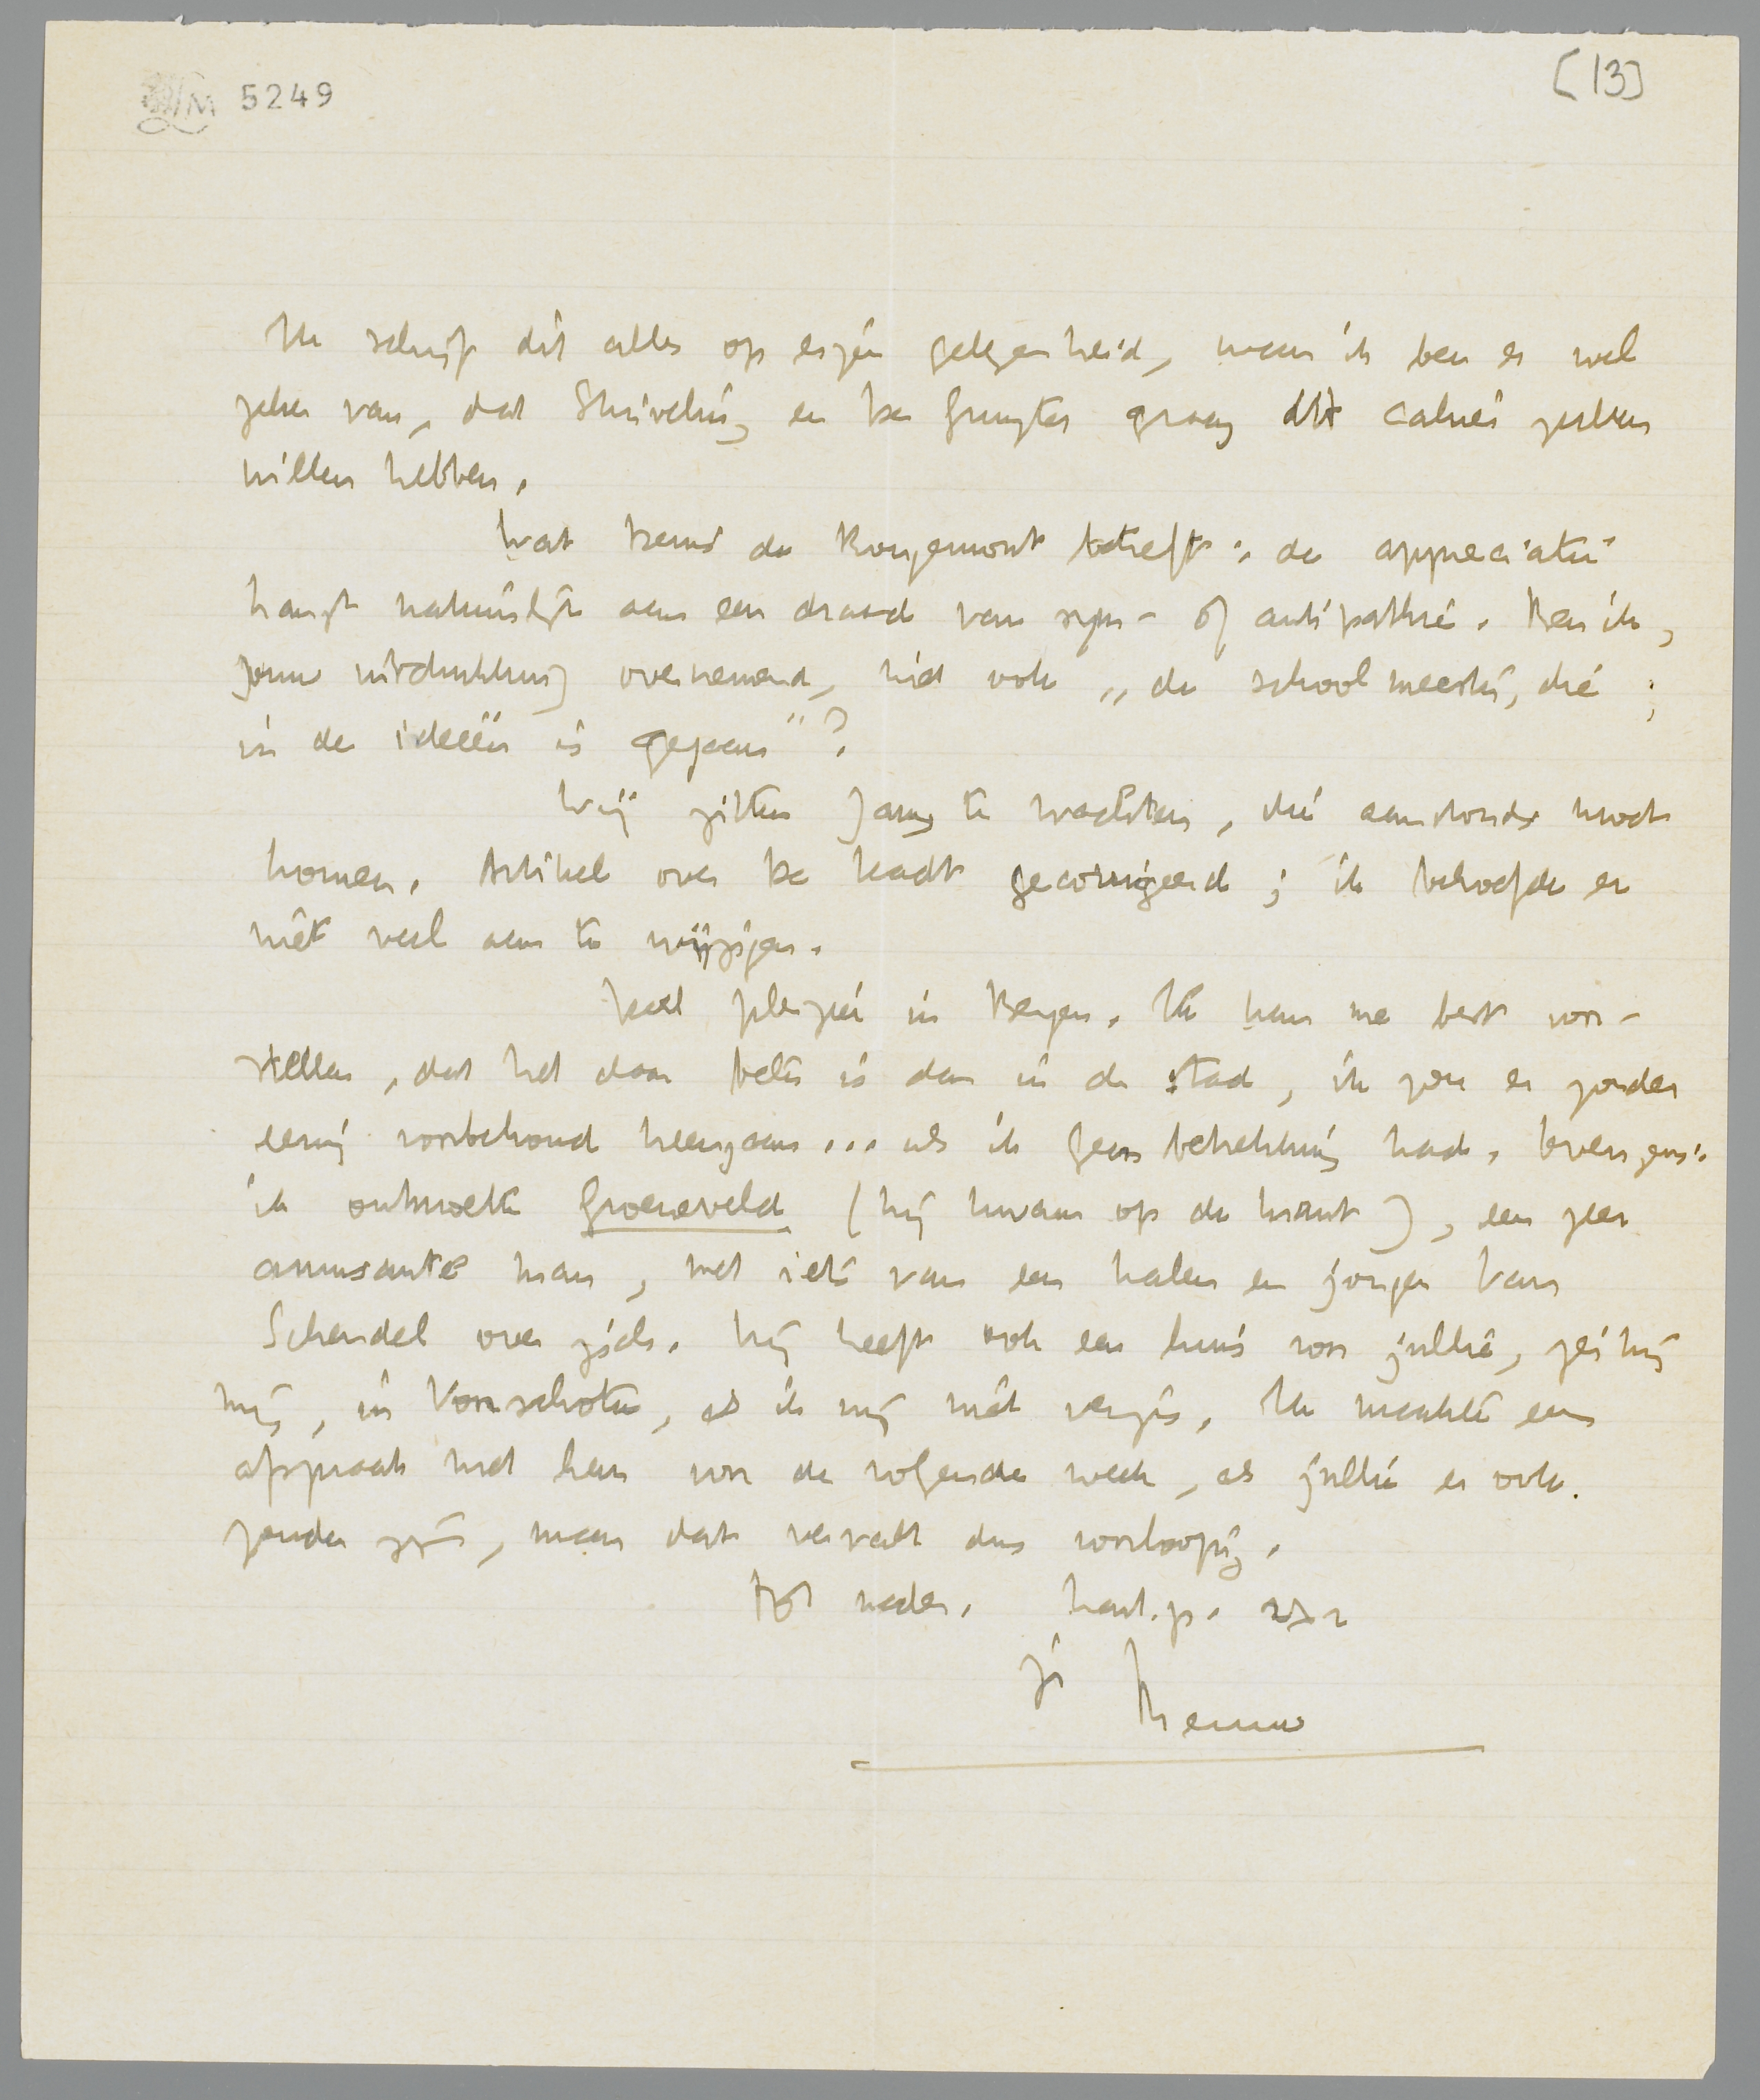 5249
[13]
Ik schrijf dit alles op eigen gelegenheid, maar ik ben er wel
zeker van, dat Stuiveling en De Gruyter graag dit cahier zullen
willen hebben.
Wat Denis de Rougemont betreft: de appreciatie
hangt natuurlijk aan een draad van sym- of antipathie. Ben ik,
jouw uitdrukking overnemend, niet ook „de schoolmeester, die
in de ideeën is gegaan"?
Wij zitten Jany te wachten, die aanstonds moet
komen. Artikel over De Kadt gecorrigeerd; ik behoefde er
niet veel aan te wijzigen.
Veel plezier in Bergen. Ik kan me best voor-
stellen, dat het daar beter is dan in de stad, ik zou er zonder
eenig voorbehoud heengaan... als ik geen betrekking had. Overigens:
ik ontmoette Groeneveld (hij kwam op de krant), een zeer
amusante man, met iets van een kalen en jongen Van
Schendel over zich. Hij heeft ook een huis voor jullie, zei hij
mij, in Voorschoten, als ik mij niet vergis. Ik maakte een
afspraak met hem voor de volgende week, als jullie er ook
zouden zijn, maar dat vervalt dus voorloopig.
Tot nader. hart. gr. 2x2
je Menno